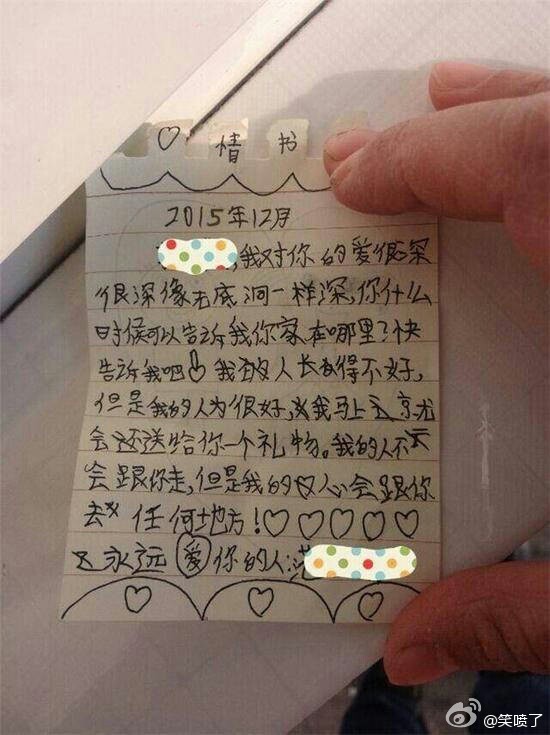 ♡ 情书
2015年12月
,我对你的爱很深
很深像无底洞一样深,你什么
时候可以告诉我你家在哪里?快
告诉我吧 我 人长 得不好,
但是我的人为很好, 我马上
会 送给你一个礼物。我的人不
会跟你走,但是我的 心会跟你
去 任何地方!♡♡♡♡♡
永远爱你的人:
♡ ♡ ♡
@笑喷了